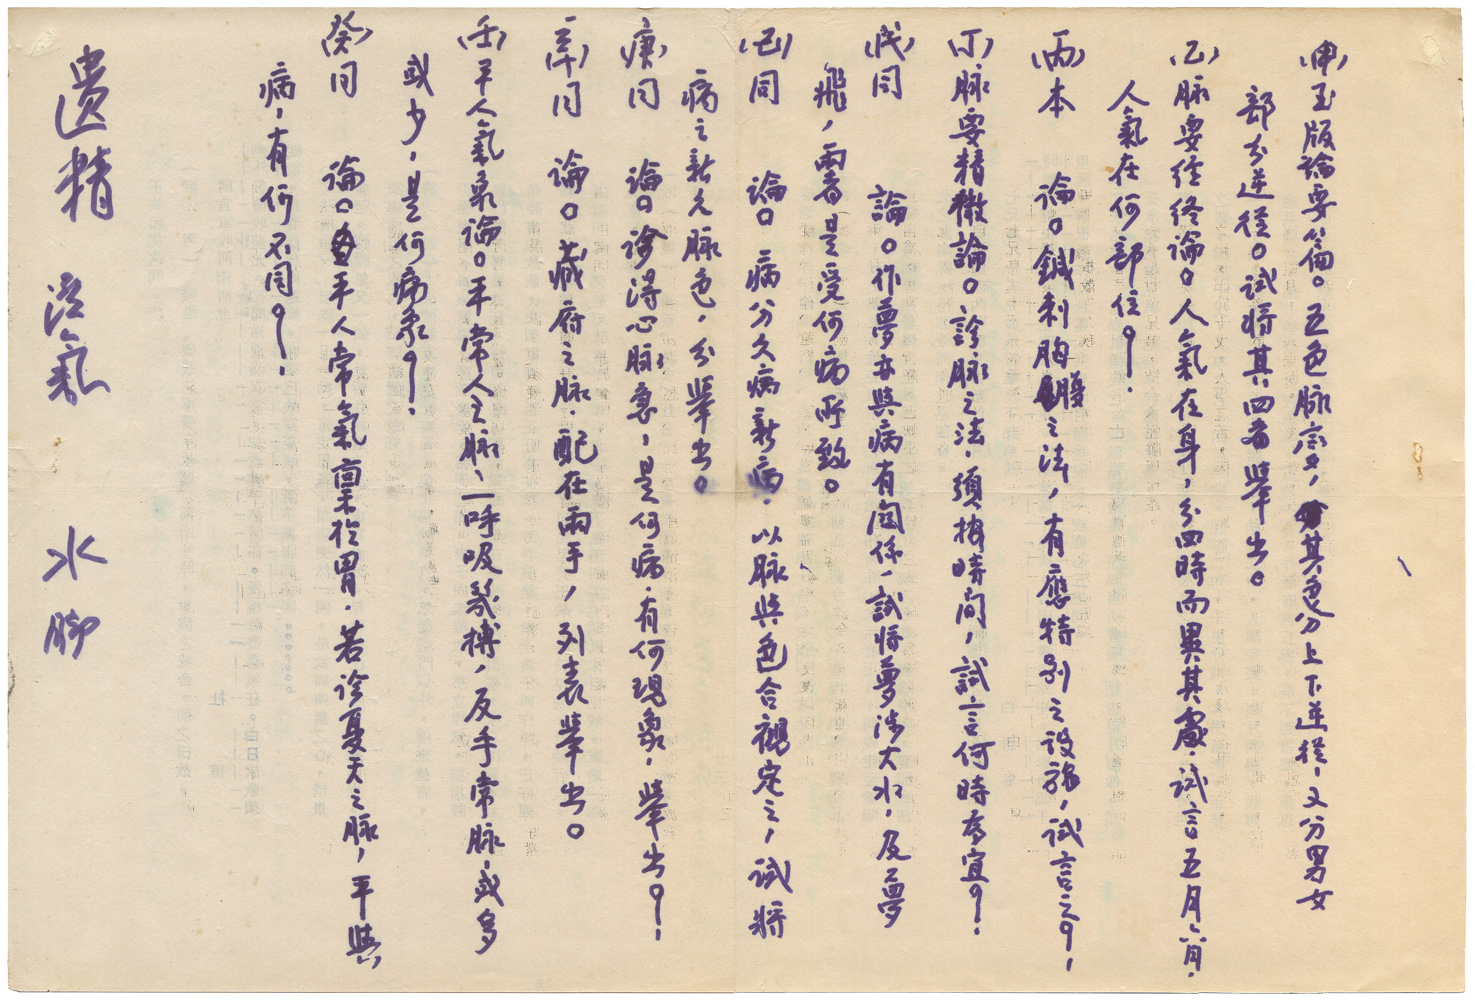 (甲)玉版論要篇。五色脉字,其色分上下逆從,又分男女
部分逆從。試將其四者舉出。
(乙)脉要经终論。人氣在身,分四時而異其處,試言五月六月,
人氣在何部位?
(丙)本 論。鍼刺胸膺之法,有應特别之設施,試言之?
(丁)脉要精微論。診脉之法,須按時间,試言何時為宜?
(戊)同 論。作夢亦與病有関係,試將夢涉大水,及夢
飛,兩者是受何病所致。
(己)同 論。病分久病新病,以脉與色合觀定之,試將
病之新久脉色,分舉出。
(庚)同 論。診得心脉急,是何病,有何現象,舉出?
(辛)同 論。藏府之脉,配在兩手,列表舉出。
(壬)平人氣象論。平常人之脉,一呼吸幾搏,反乎常脉,或多
或少,是何病象?
(癸)同 論。平人常氣稟於胃,若診夏天之脉,平與
病,有何不同?
遗精 疝氣 水脚